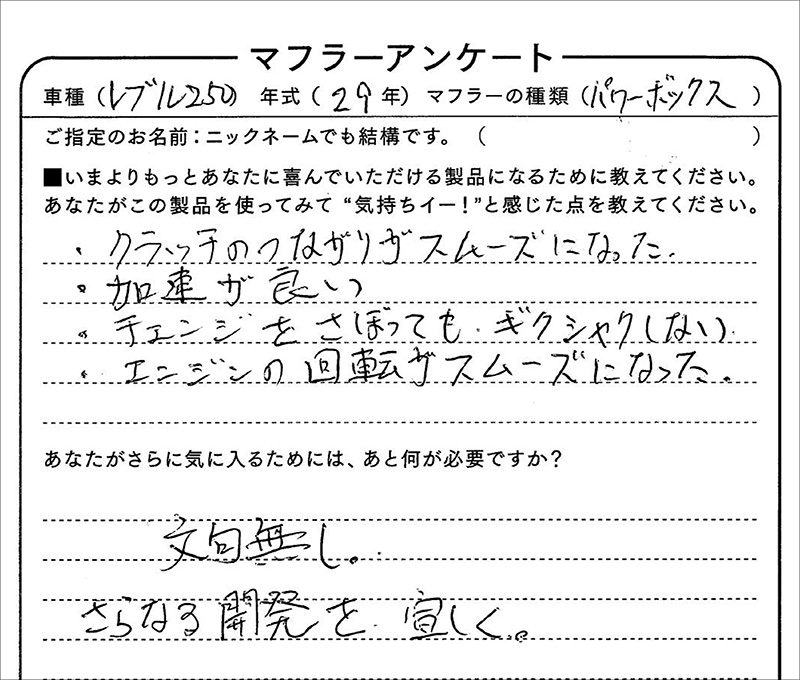 マフラーアンケート
車種（レブル250）年式（29年）マフラーの種類（パワーボックス）
ご指定のお名前：ニックネームでも結構です。（　　　）
■いまよりもっとあなたに喜んでいただける製品になるために教えてください。
あなたがこの製品を使ってみて“気持ちイー！”と感じた点を教えてください。
・クラッチのつながりがスムーズになった.
・加速が良い
・チェンジをさぼっても.ギクシャクしない.
・エンジンの回転がスムーズになった.
あなたがさらに気に入るためには、あと何が必要ですか？
文句無し。
さらなる開発を.宜しく。